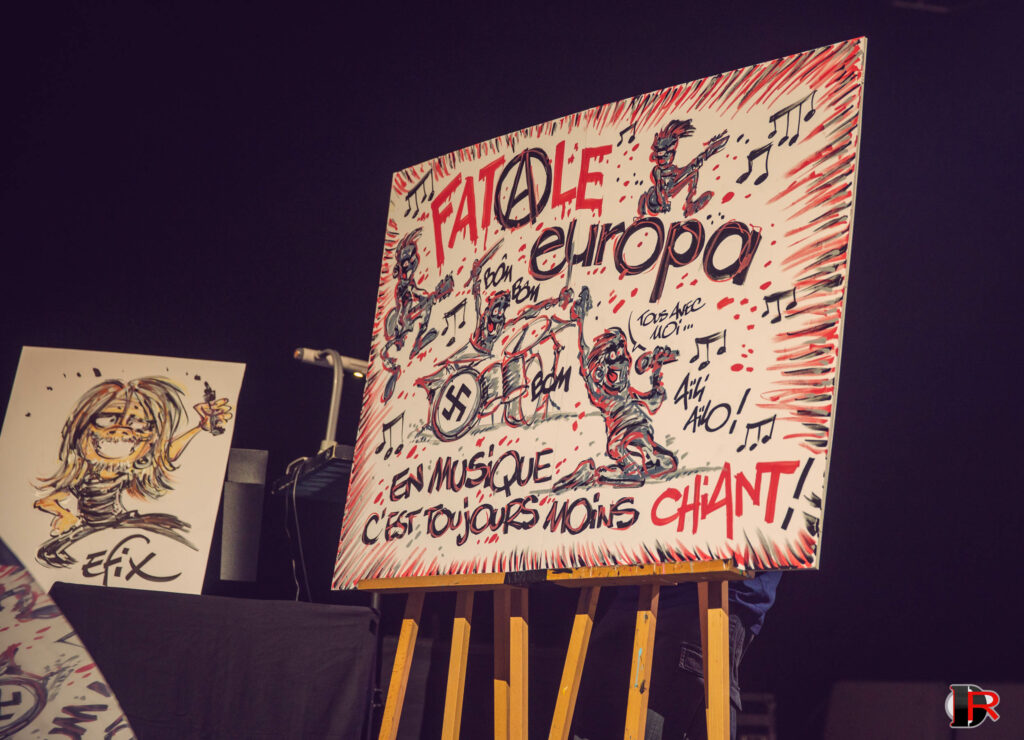 FATALE
europa
BOM
BOM
TOUS AVEC
MOI...
BOM
AÏLI
AÏLO!
EN MUSIQUE
C'EST TOUJOURS MOINS CHIANT!
EFIX
DR